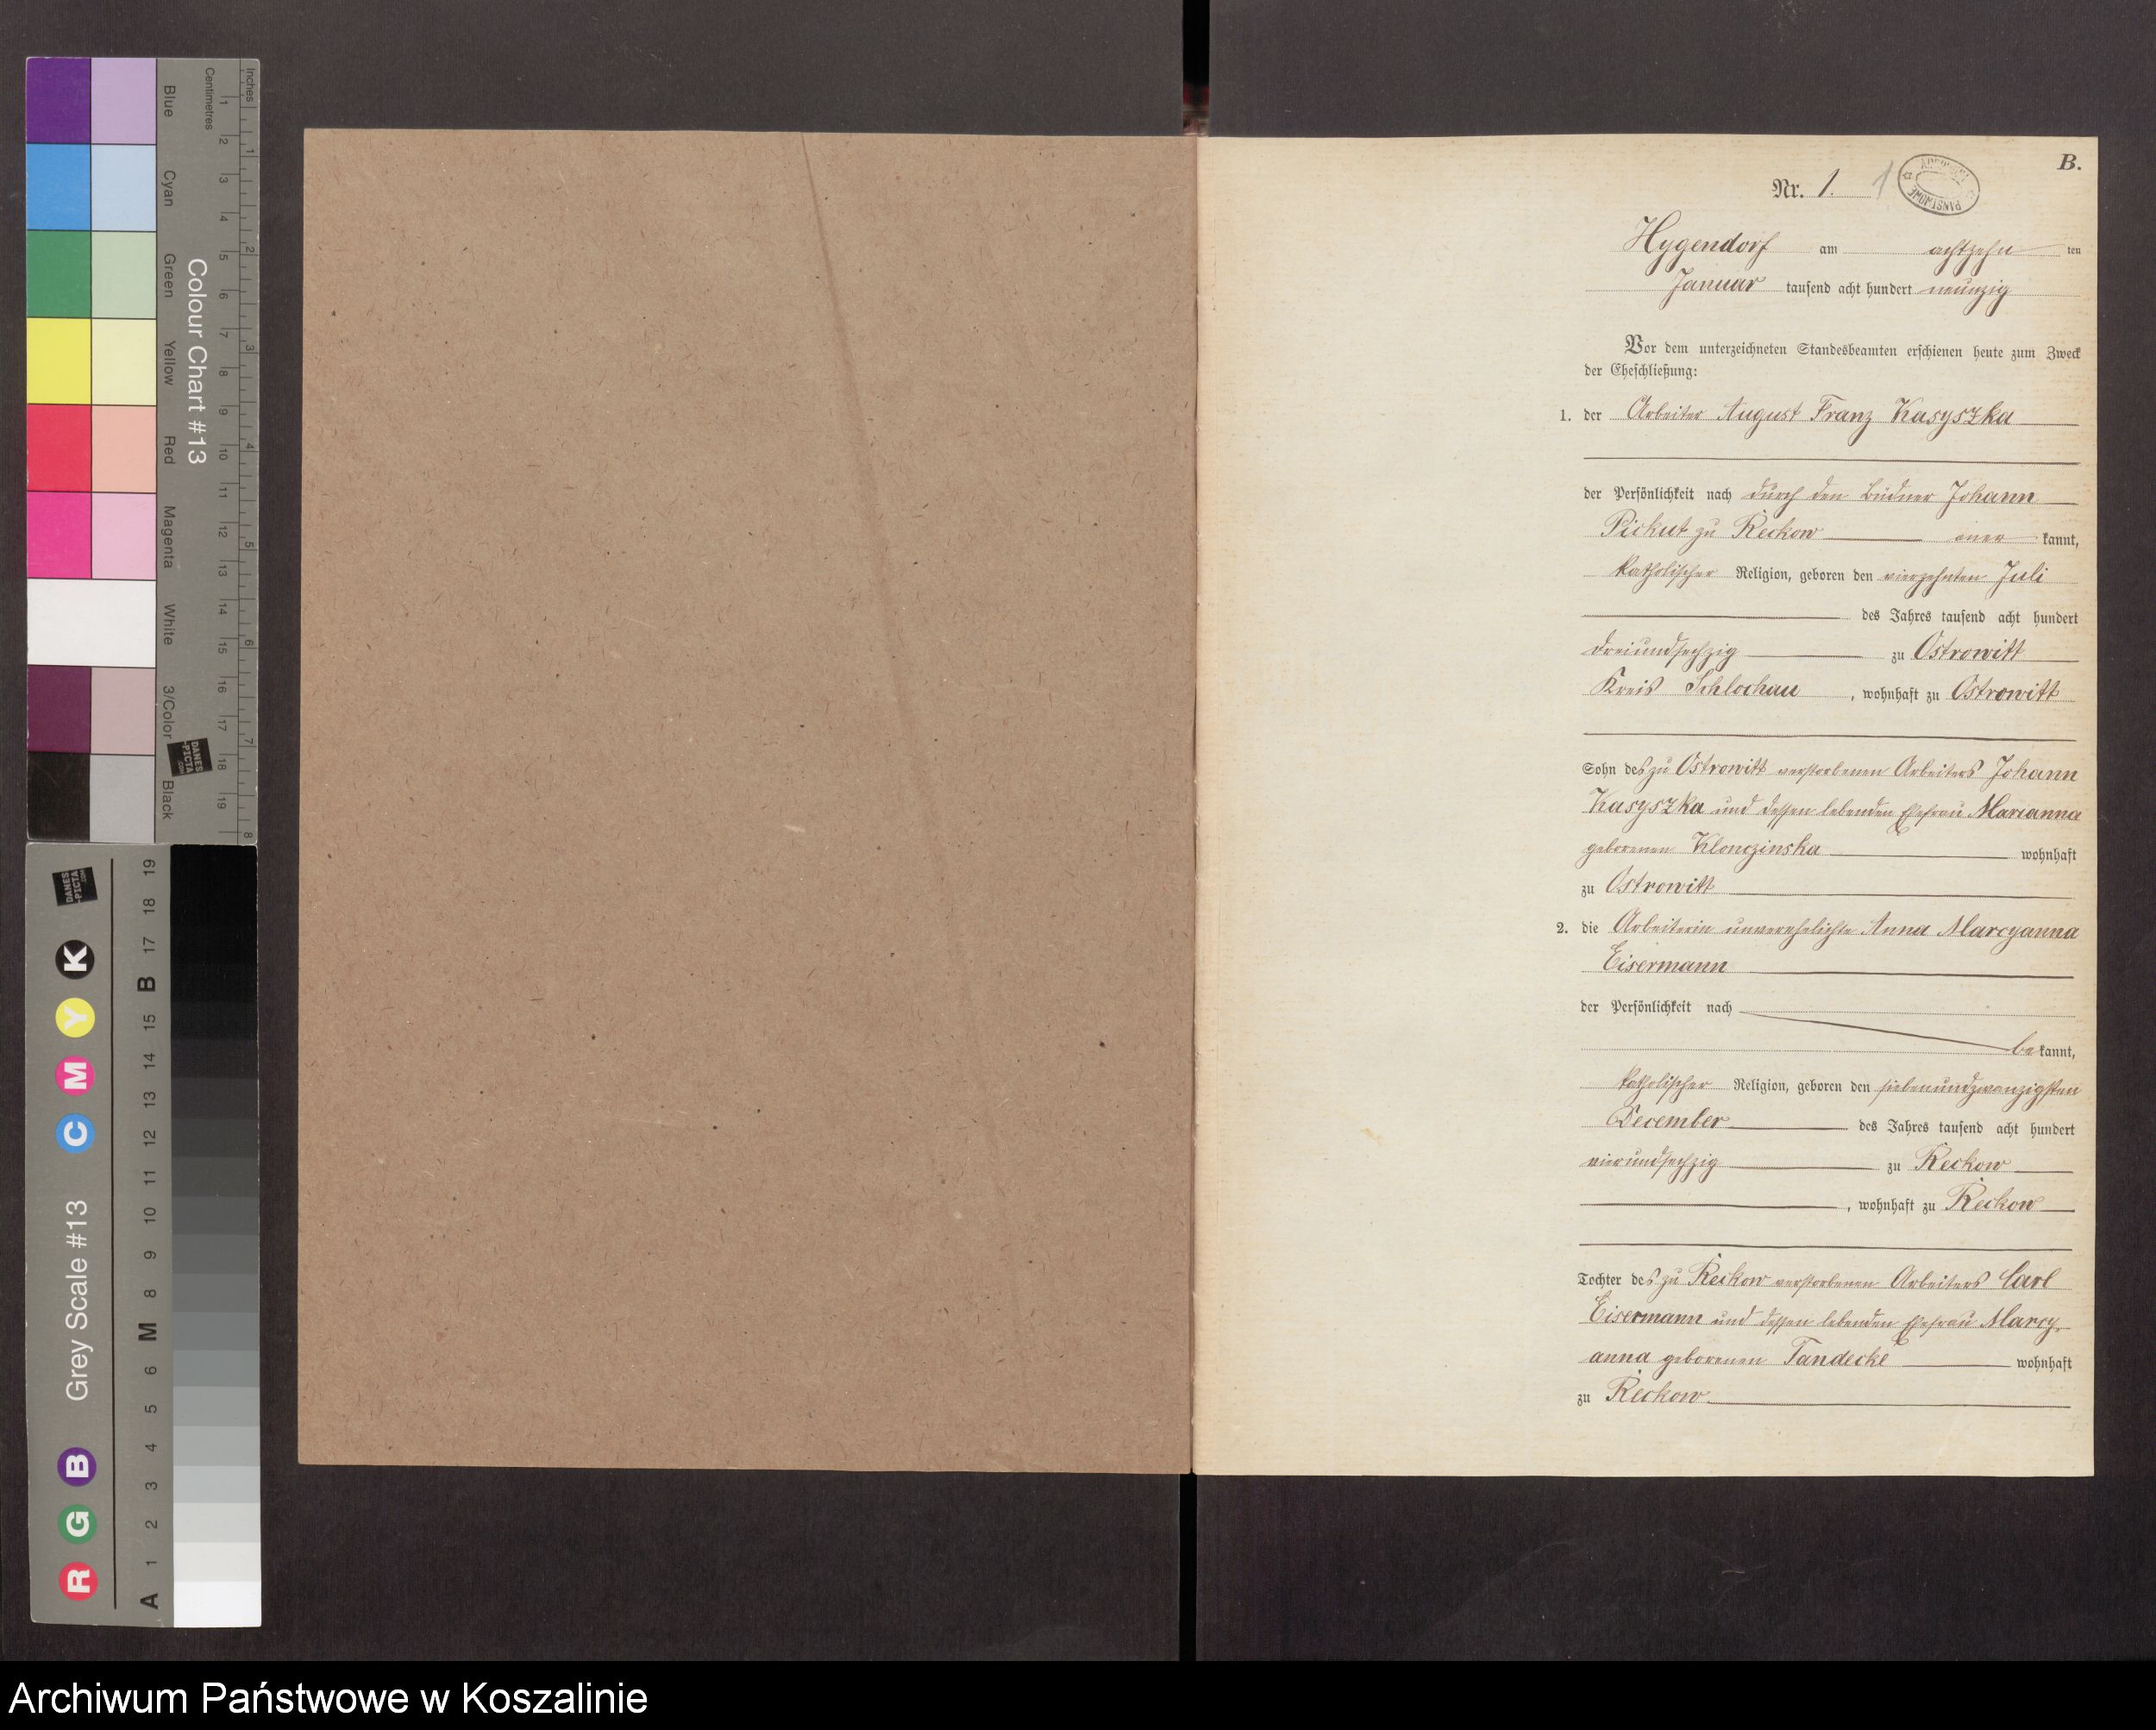 Inches
Centimetres
1 2 3 4 5 6 7 8 9 10 11 12 13 14 15 16 17 18 19
1 2 3 4 5 6 7 8
Colour Chart #13
Blue
Cyan
Green
Yellow
Red
Magenta
White
3/Color
Black
DANES
-PICTA
.COM
DANES
-PICTA
.COM
Grey Scale #13
R G B C M Y K
A 1 2 3 4 5 6 M 8 9 10 11 12 13 14 15 B 17 18 19
B.
Nr. 1. 1
Hygendorf am achtzehn ten
Januar tausend acht hundert neunzig
Vor dem unterzeichneten Standesbeamten erschienen heute zum Zweck
der Eheschließung:
1. der Arbeiter August Franz Kasyszka
der Persönlichkeit nach durch den Büdner Johann
Pickut zu Reckow aner kannt,
katholischer Religion, geboren den vierzehnten Juli
des Jahres tausend acht hundert
dreiundsechzig zu Ostrowitt
Kreis Schlochau, wohnhaft zu Ostrowitt
Sohn des zu Ostrowitt verstorbenen Arbeiters Johann
Kasyszka und dessen lebenden Ehefrau Marianna
geborenen Klonczinska wohnhaft
zu Ostrowitt
2. die Arbeiterin unverehelichte Anna Marcyanna
Eisermann
der Persönlichkeit nach
be kannt,
katholischer Religion, geboren den siebenundzwanzigsten
December des Jahres tausend acht hundert
vierundsechzig zu Reckow
, wohnhaft zu Reckow
Tochter des zu Reckow verstorbenen Arbeiters Carl
Eisermann und dessen lebenden Ehefrau Marcy
anna geborenen Tandecke wohnhaft
zu Reckow
Archiwum Państwowe w Koszalinie